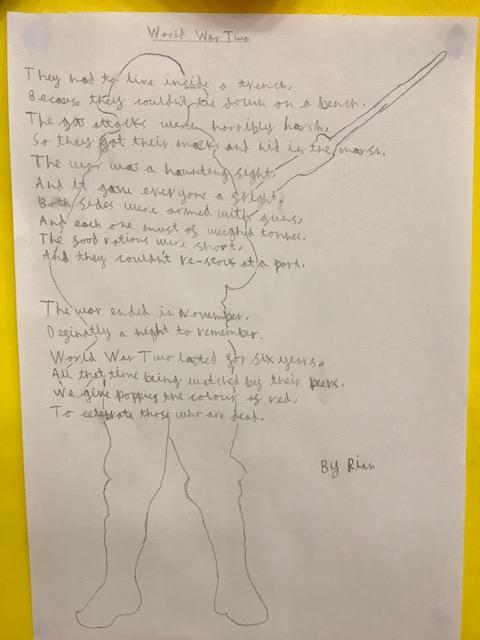 World War Two
They had to live inside a trench,
Because they couldn't lie down on a bench.
The gas attacks were horribly harsh,
So they got their masks and hid in the marsh.
The war was a haunting sight,
And it gave everyone a fright.
Both sides were armed with guns,
And each one must of weighed tonnes.
The food rations were short,
And they couldn't re-stock at a port.
The war ended in November,
Definatly a night to remember.
World War Two lasted for six years,
All that time being watched by their peers.
We give poppies the colour of red,
To celebrate those who are dead.
By Rian